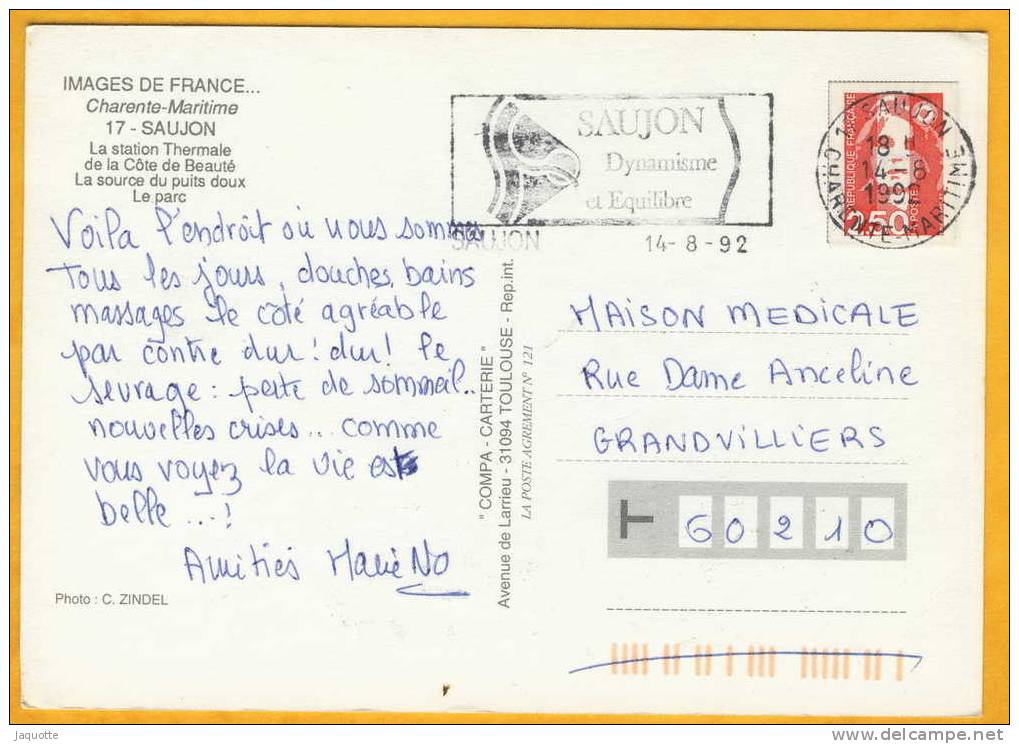 IMAGES DE FRANCE...
Charente-Maritime
17 - SAUJON
La station Thermale
de la Côte de Beauté
La source du puits doux
Le parc
Voila l'endroit où nous sommes
tous les jours, douches, bains
massages le côté agréable
par contre dur! dur! le
sevrage : perte de sommeil..
nouvelles crises... comme
vous voyez la vie est
belle ...!
Amitiés
Photo : C. ZINDEL
" COMPA - CARTERIE "
Avenue de Larrieu - 31094 TOULOUSE - Rep.int.
LA POSTE AGREMENT N° 121
SAUJON
Dynamisme
et Equilibre
SAUJON 14- 8 - 92
17 SAUJON
18 H
14-8
1992
CHARENTE-MARITIME
REPUBLIQUE FRANÇAISE
POSTES
2,50
MAISON MEDICALE
Rue Dame Anceline
GRANDVILLIERS
T 60210
Jaquotte
delcampe.net